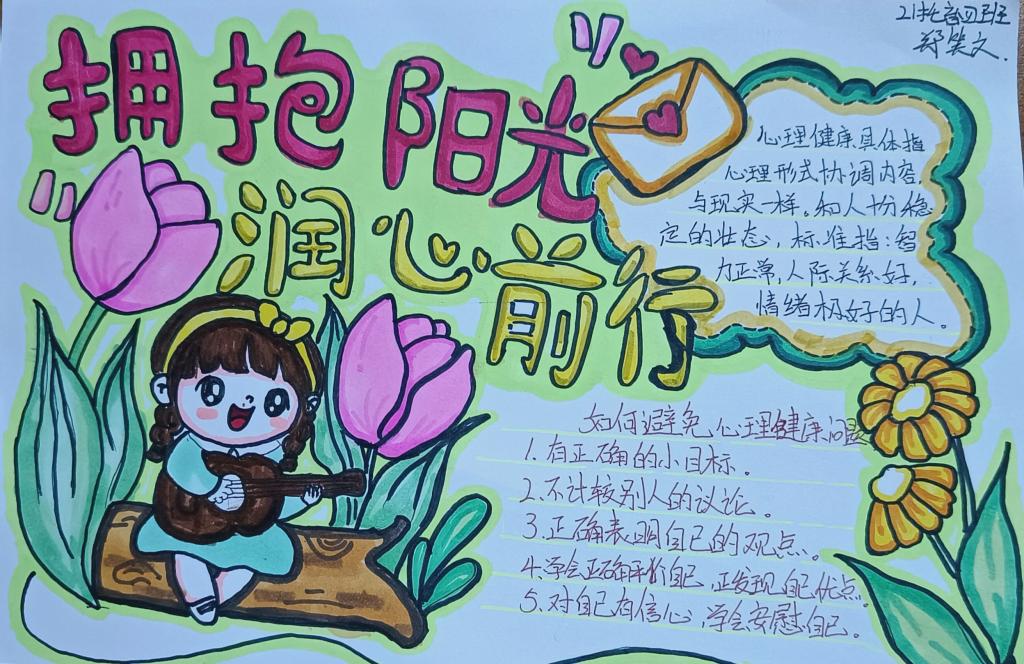 21托育四班
郑笑文.
拥抱阳光
润心前行
心理健康具体指
心理形式协调内容,
与现实一样。和人十分稳
定的状态，标准指：智
力正常，人际关系好，
情绪极好的人。
如何避免心理健康问题
1.有正确的小目标。
2.不计较别人的议论。
3.正确表明自己的观点。
4.学会正确评价自己,正发现自己优点.
5.对自己有信心，学会安慰自己。